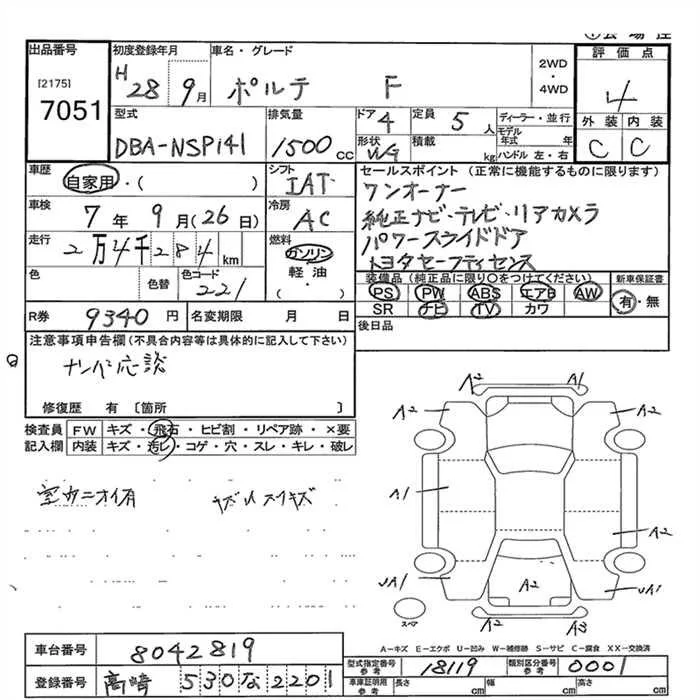 出品番号
[2175]
7051
初度登録年月
H 28 9月
車名・グレード
ポルテ F
2WD
・
4WD
評価点
4
外装 内装
C C
型式
DBA-NSP141
排気量
1500 CC
ドア 4
形状 WG
定員 5 人
積載 kg
ディーラー・並行
モデル年式 年
ハンドル 左・右
車歴
自家用・( )
シフト
IAT
車検
7年9月(26日)
冷房
AC
走行
2万4千284 km
燃料
ガソリン
軽・油
・( )
色
色替
色コード
221
セールスポイント (正常に機能するものに限ります)
ワンオーナー
純正ナビ・テレビ・リアカメラ
パワースライドドア
トヨタセーフティセンス
装備品(純正品に限り○をつけてください)
PS PW ABS エアB AW
SR ナビ TV カワ
新車保証書
有・無
R券 9340 円
名変期限 月 日
後日品
注意事項申告欄(不具合内容等は具体的に記入して下さい)
ナンバー応談
修復歴 有 〔箇所 〕
検査員 FW キズ・飛石・ヒビ割・リペア跡・×要
記入欄 内装 キズ・汚レ・コゲ・穴・スレ・キレ・破レ
室内ニオイ有
A2 A1
A2 A2
A1
A2
UA1 A2 UA1
A2 A3
スペア
A-キズ E-エクボ U-凹み W-補修跡 S-サビ C-腐食 XX-交換済
車台番号 8042819
登録番号 高崎 530 な 2201
型式指定番号 参考 18119
類別区分番号 参考 0001
車庫証明用 参考 長さ cm 幅 cm 高さ cm